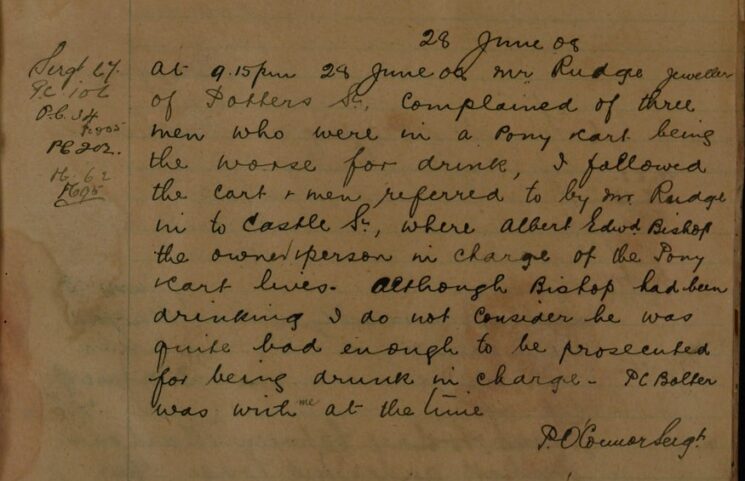 28 June 08
Sergt 27.
P.C 106
P.C. 34
PC 202.
H. 62
H 95
At 9.15pm 28 June 08 Mr Rudge Jeweller
of Potters St, complained of three
men who were in a Pony Kart being
the worse for drink, I followed
the cart & men referred to by Mr Rudge
in to Castle St, where Albert Edwd Bishop
the owner & person in charge of the Pony
Kart lives. Although Bishop had been
drinking I do not consider he was
quite bad enough to be prosecuted
for being drunk in charge - PC Bolter
was with me at the time
P. O'Connor Sergt